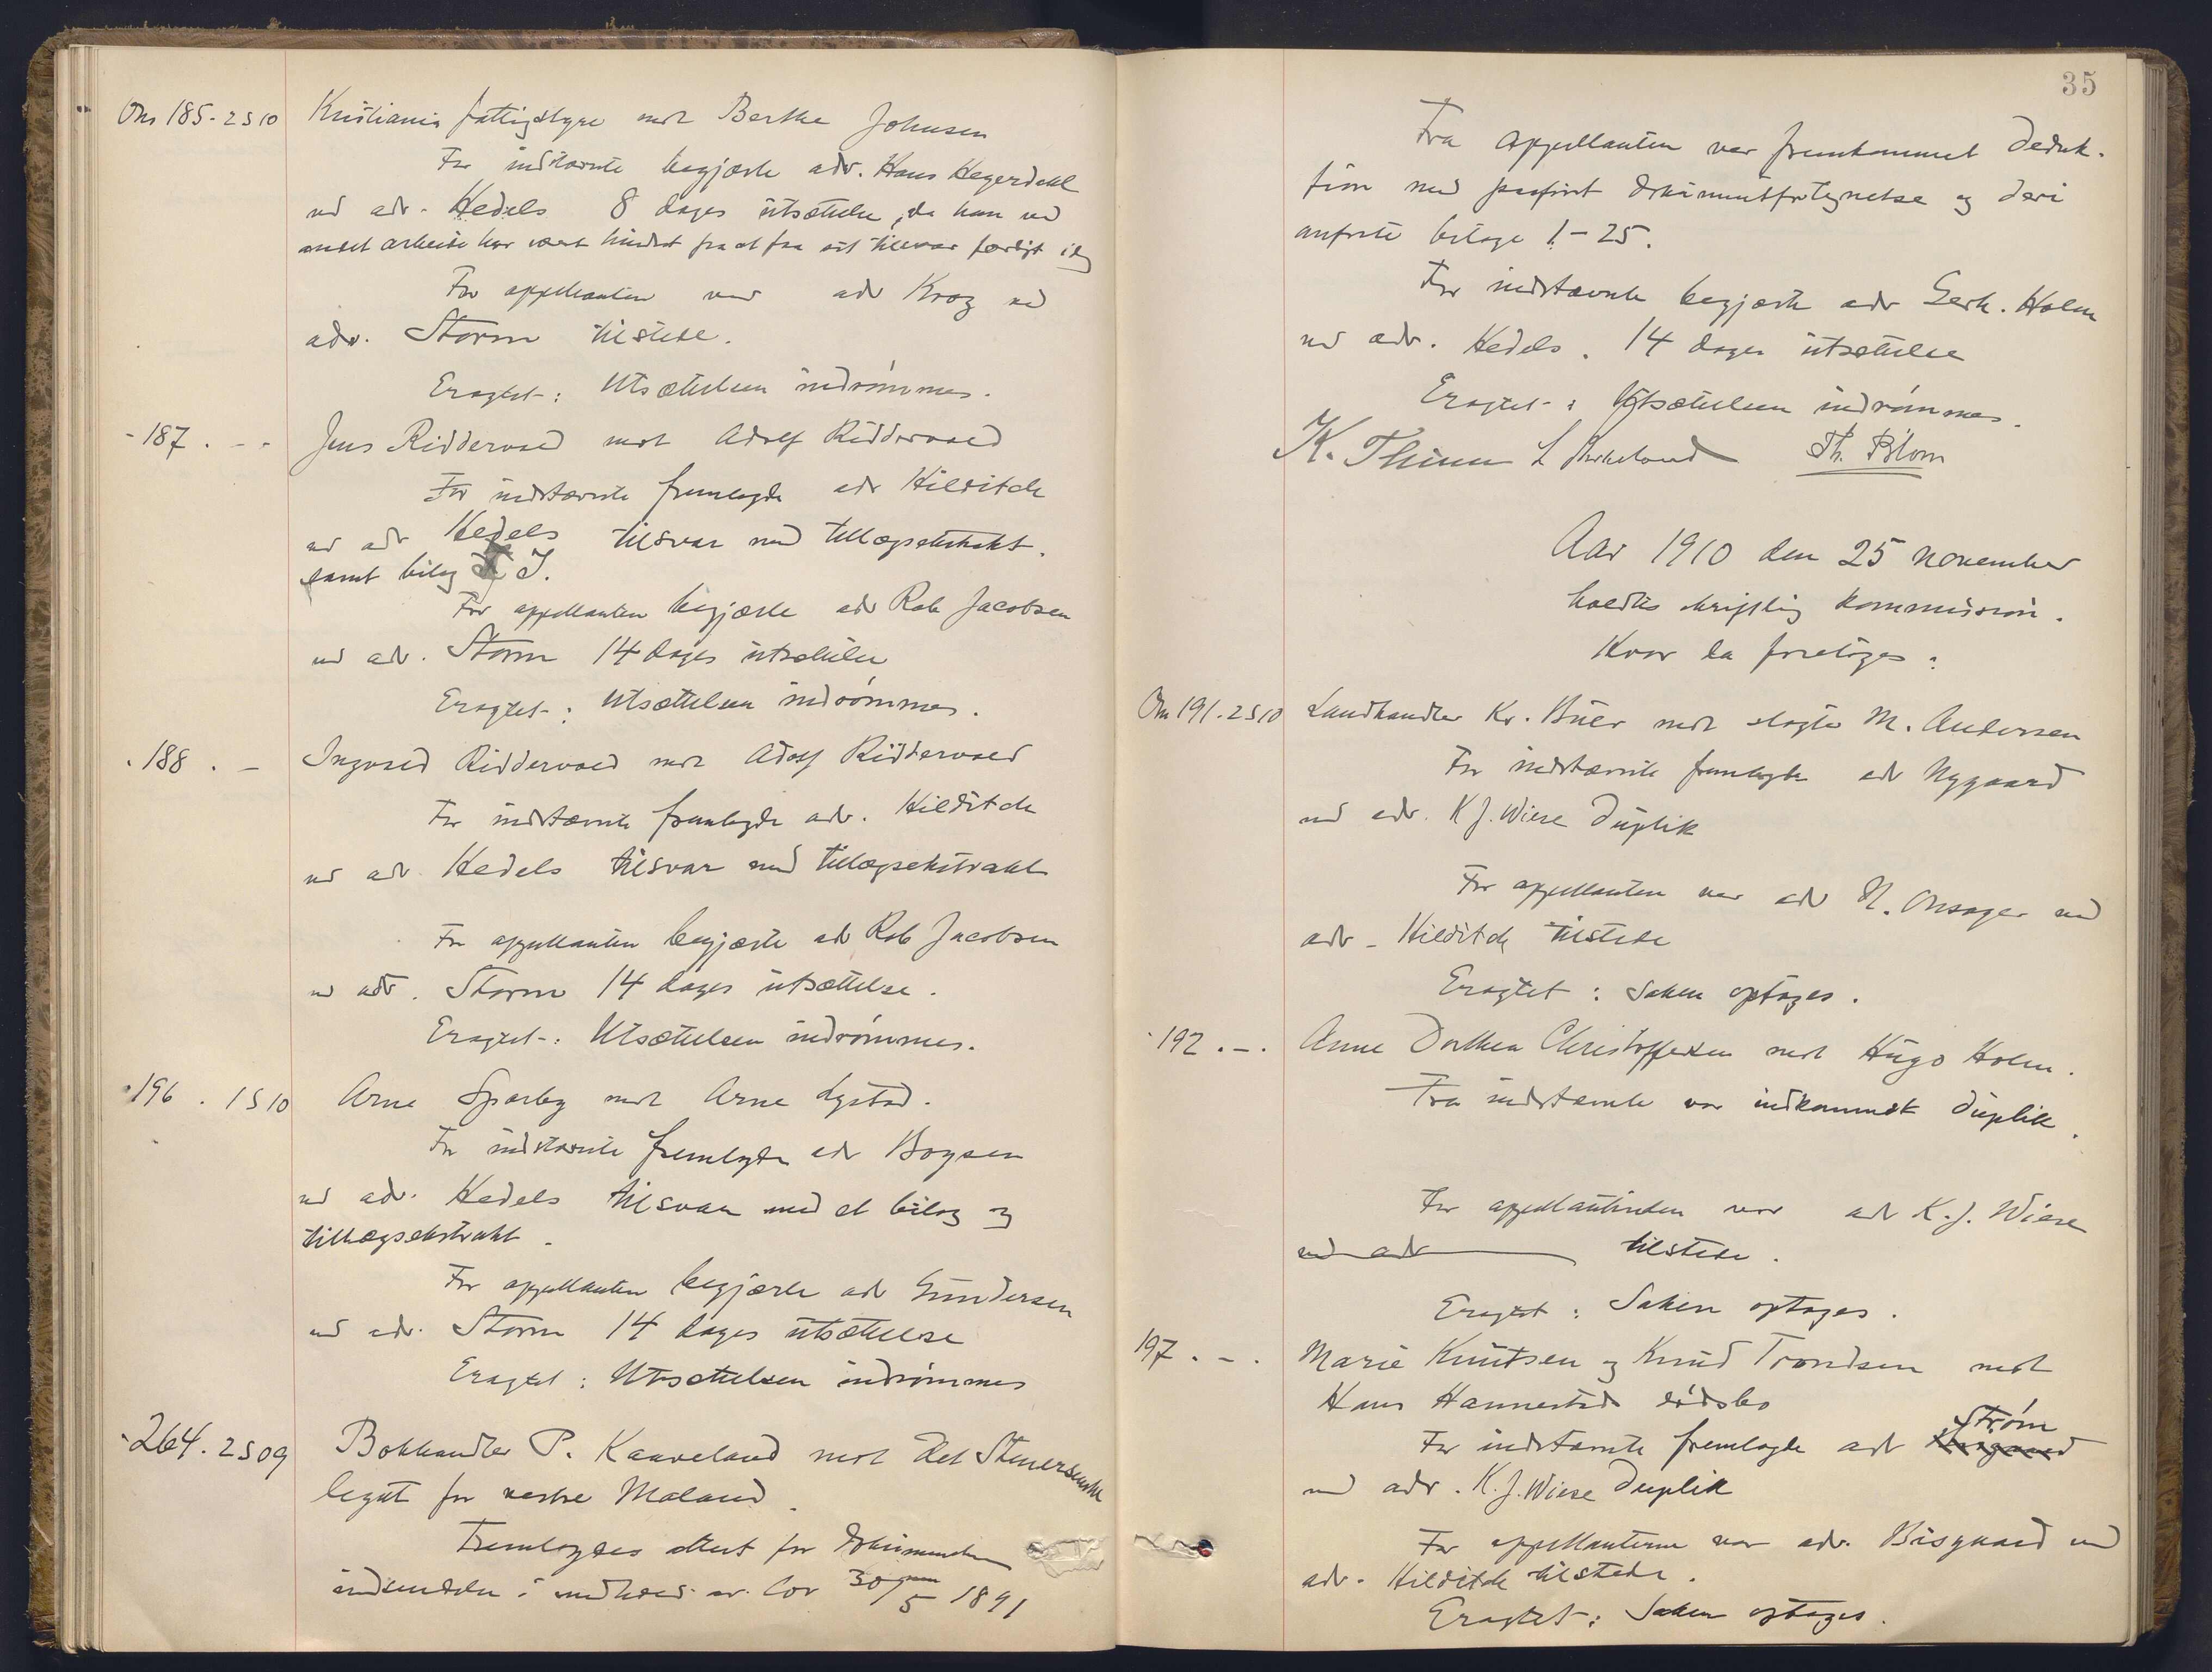 Om 185-2 S 10 Kristiania fattigstyre mot Berthe Johnsen
For indstævnte begjærte adv. Hans Hegerdahl
ved adv. Hedels 8 dages utsættelse, da han ved
andet arbeide har vært hindret fra at faa sit tilsvar færdigt idag
For appellanten var adv Krog ved
adv. Storm tilstede.
Eragtet: Utsættelsen indrømmes.
- 187 . - - Jens Riddervold mot Adolf Riddervold
For indstævnte fremlagde adv Hilditch
ved adv Hedels tilsvar med tillægsekstrakt.
samt bilag J.
For appellanten begjærte adv Rob Jacobsen
ved adv. Storm 14 dages utsættelse
Eragtet: Utsættelsen indrømmes.
- 188 . - Ingvald Riddervold mot Adolf Riddervold
For indstævnte fremlagde adv. Hilditch
ved adv Hedels tilsvar med tillægsekstrakt
For appellanten begjærte adv Rob Jacobsen
ved adv. Storm 14 dages utsættelse.
Eragtet: Utsættelsen indrømmes.
- 196 . 1 S 10 Arne Sparby mot Arne Lystad.
For indstævnte fremlagde adv Boysen
ved adv. Hedels tilsvar med et bilag og
tillægsekstrakt.
For appellanten begjærte adv Gundersen
ved adv. Storm 14 dages utsættelse
Eragtet: Utsættelsen indrømmes
- 264. 2 S 09 Bokhandler P. Kaaveland mot det Stenersenske
legat for vestre Moland.
Fremlagdes attest for dokumenternes
indsendelse i medhold av lov 30/5 1891
35
Fra appellanten var fremkommet deduk-
tion med paaført dokumentfortegnelse og deri
anførte bilage 1-25.
For indstævnte begjærte adv Gerh. Holm
ved adv. Hedels. 14 dages utsættelse
Eragtet: Utsættelsen indrømmes.
K. Thinn L Birkeland Th. Blom
Aar 1910 den 25 november
holdtes skriftlig kommission.
Hvor da foretoges:
Om 191. 2 S 10 Landhandler Kr. Buer mot slagter M. Andersen
For indstævnte fremlagde adv Nygaard
ved adv. K J. Wiese duplik
For appellanten var adv N. Onsager ved
adv. Hilditch tilstede
Eragtet: Saken optages.
- 192 . - . Anne Dorthea Christoffersen mot Hugo Holm.
Fra indstævnte var indkommet duplik.
For appellantinden var adv K. J. Wiese
ved adv tilstede.
Eragtet: Saken optages.
197 . - . Marie Knutsen og Knud Trondsen mot
Hans Hannestads dødsbo
For indstævnte fremlagde adv Strøm
ved adv. K. J. Wiese duplik
For appellanterne var adv. Bisgaard ved
adv. Hilditch tilstede.
Eragtet: Saken optages.